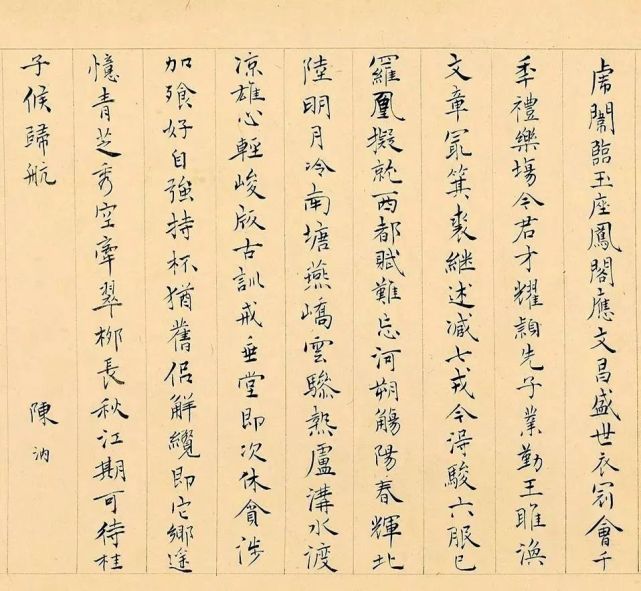 虎闈臨玉座鳳閣應文昌盛世衣冠會千
秊禮樂場令君才耀穎先子業勤王雎渙
文章冣箕裘繼述减七戎今得駿六服已
羅凰擬就西都賦難忘河朔觴陽春輝北
陸明月冷南塘燕嶠雲驂熱盧溝水渡
凉雄心輕峻阪古訓戒垂堂即次休貪涉
加飱好自強持杯猶舊侣解纜即它鄉
憶青芝秀空牽翠柳長秋江期可待桂
子候歸航
陳汭